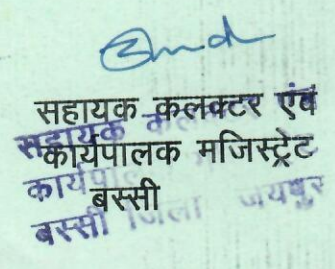 सहायक कलक्टर एवं
कार्यपालक मजिस्ट्रेट
बस्सी
सहायक कलक्टर एवं
कार्यपालक
बस्सी जिला जयपुर